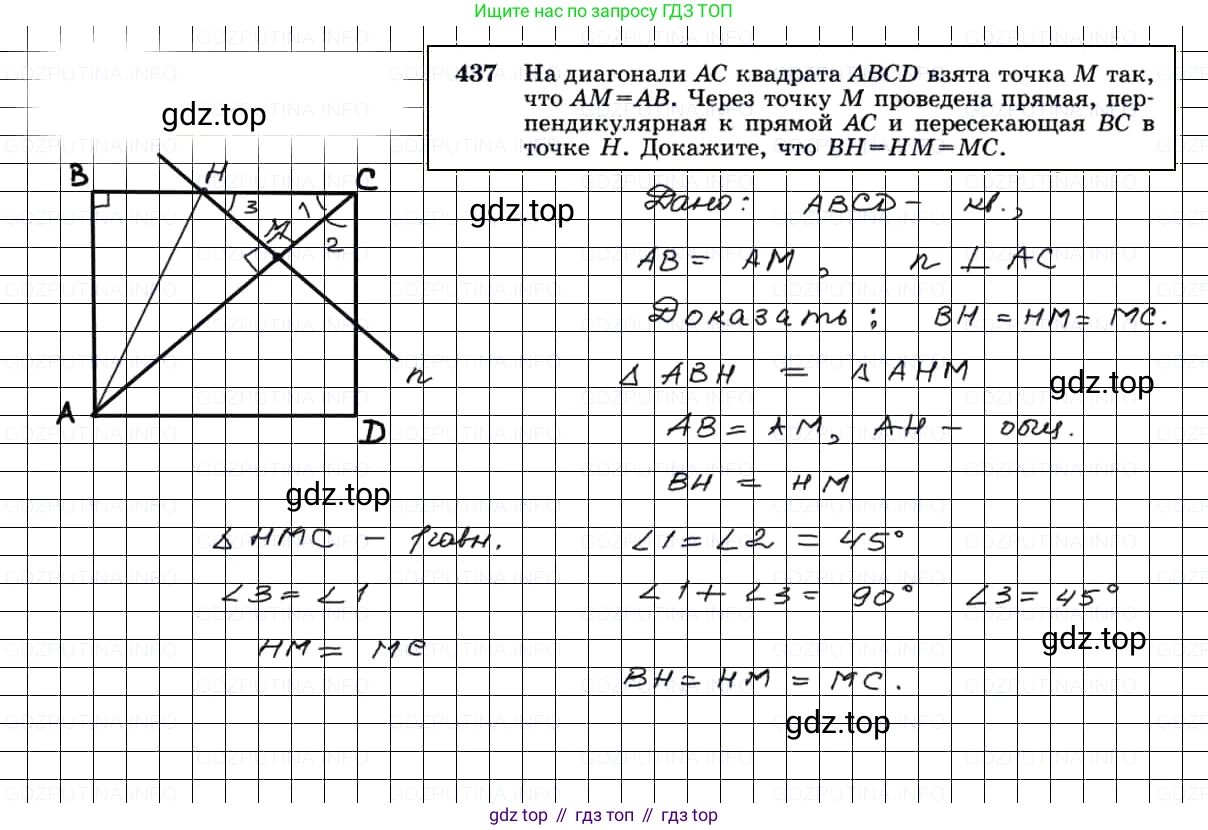 Ищите нас по запросу ГДЗ ТОП
437 На диагонали AC квадрата ABCD взята точка M так,
что AM=AB. Через точку M проведена прямая, пер-
пендикулярная к прямой AC и пересекающая BC в
точке H. Докажите, что BH=HM=MC.
gdz.top
B H C
3 1
M 2
n
A D
gdz.top
Дано: ABCD - кв.,
AB = AM, n ⊥ AC
Доказать: BH = HM = MC.
△ ABH = △ AHM
gdz.top
AB = AM, AH - общ.
BH = HM
gdz.top
△ HMC - равн.
∠1 = ∠2 = 45°
∠3 = ∠1
∠1 + ∠3 = 90° ∠3 = 45°
gdz.top
HM = MC
BH = HM = MC.
gdz.top
gdz top // гдз топ // гдз top
GDZPUTINA.INFO